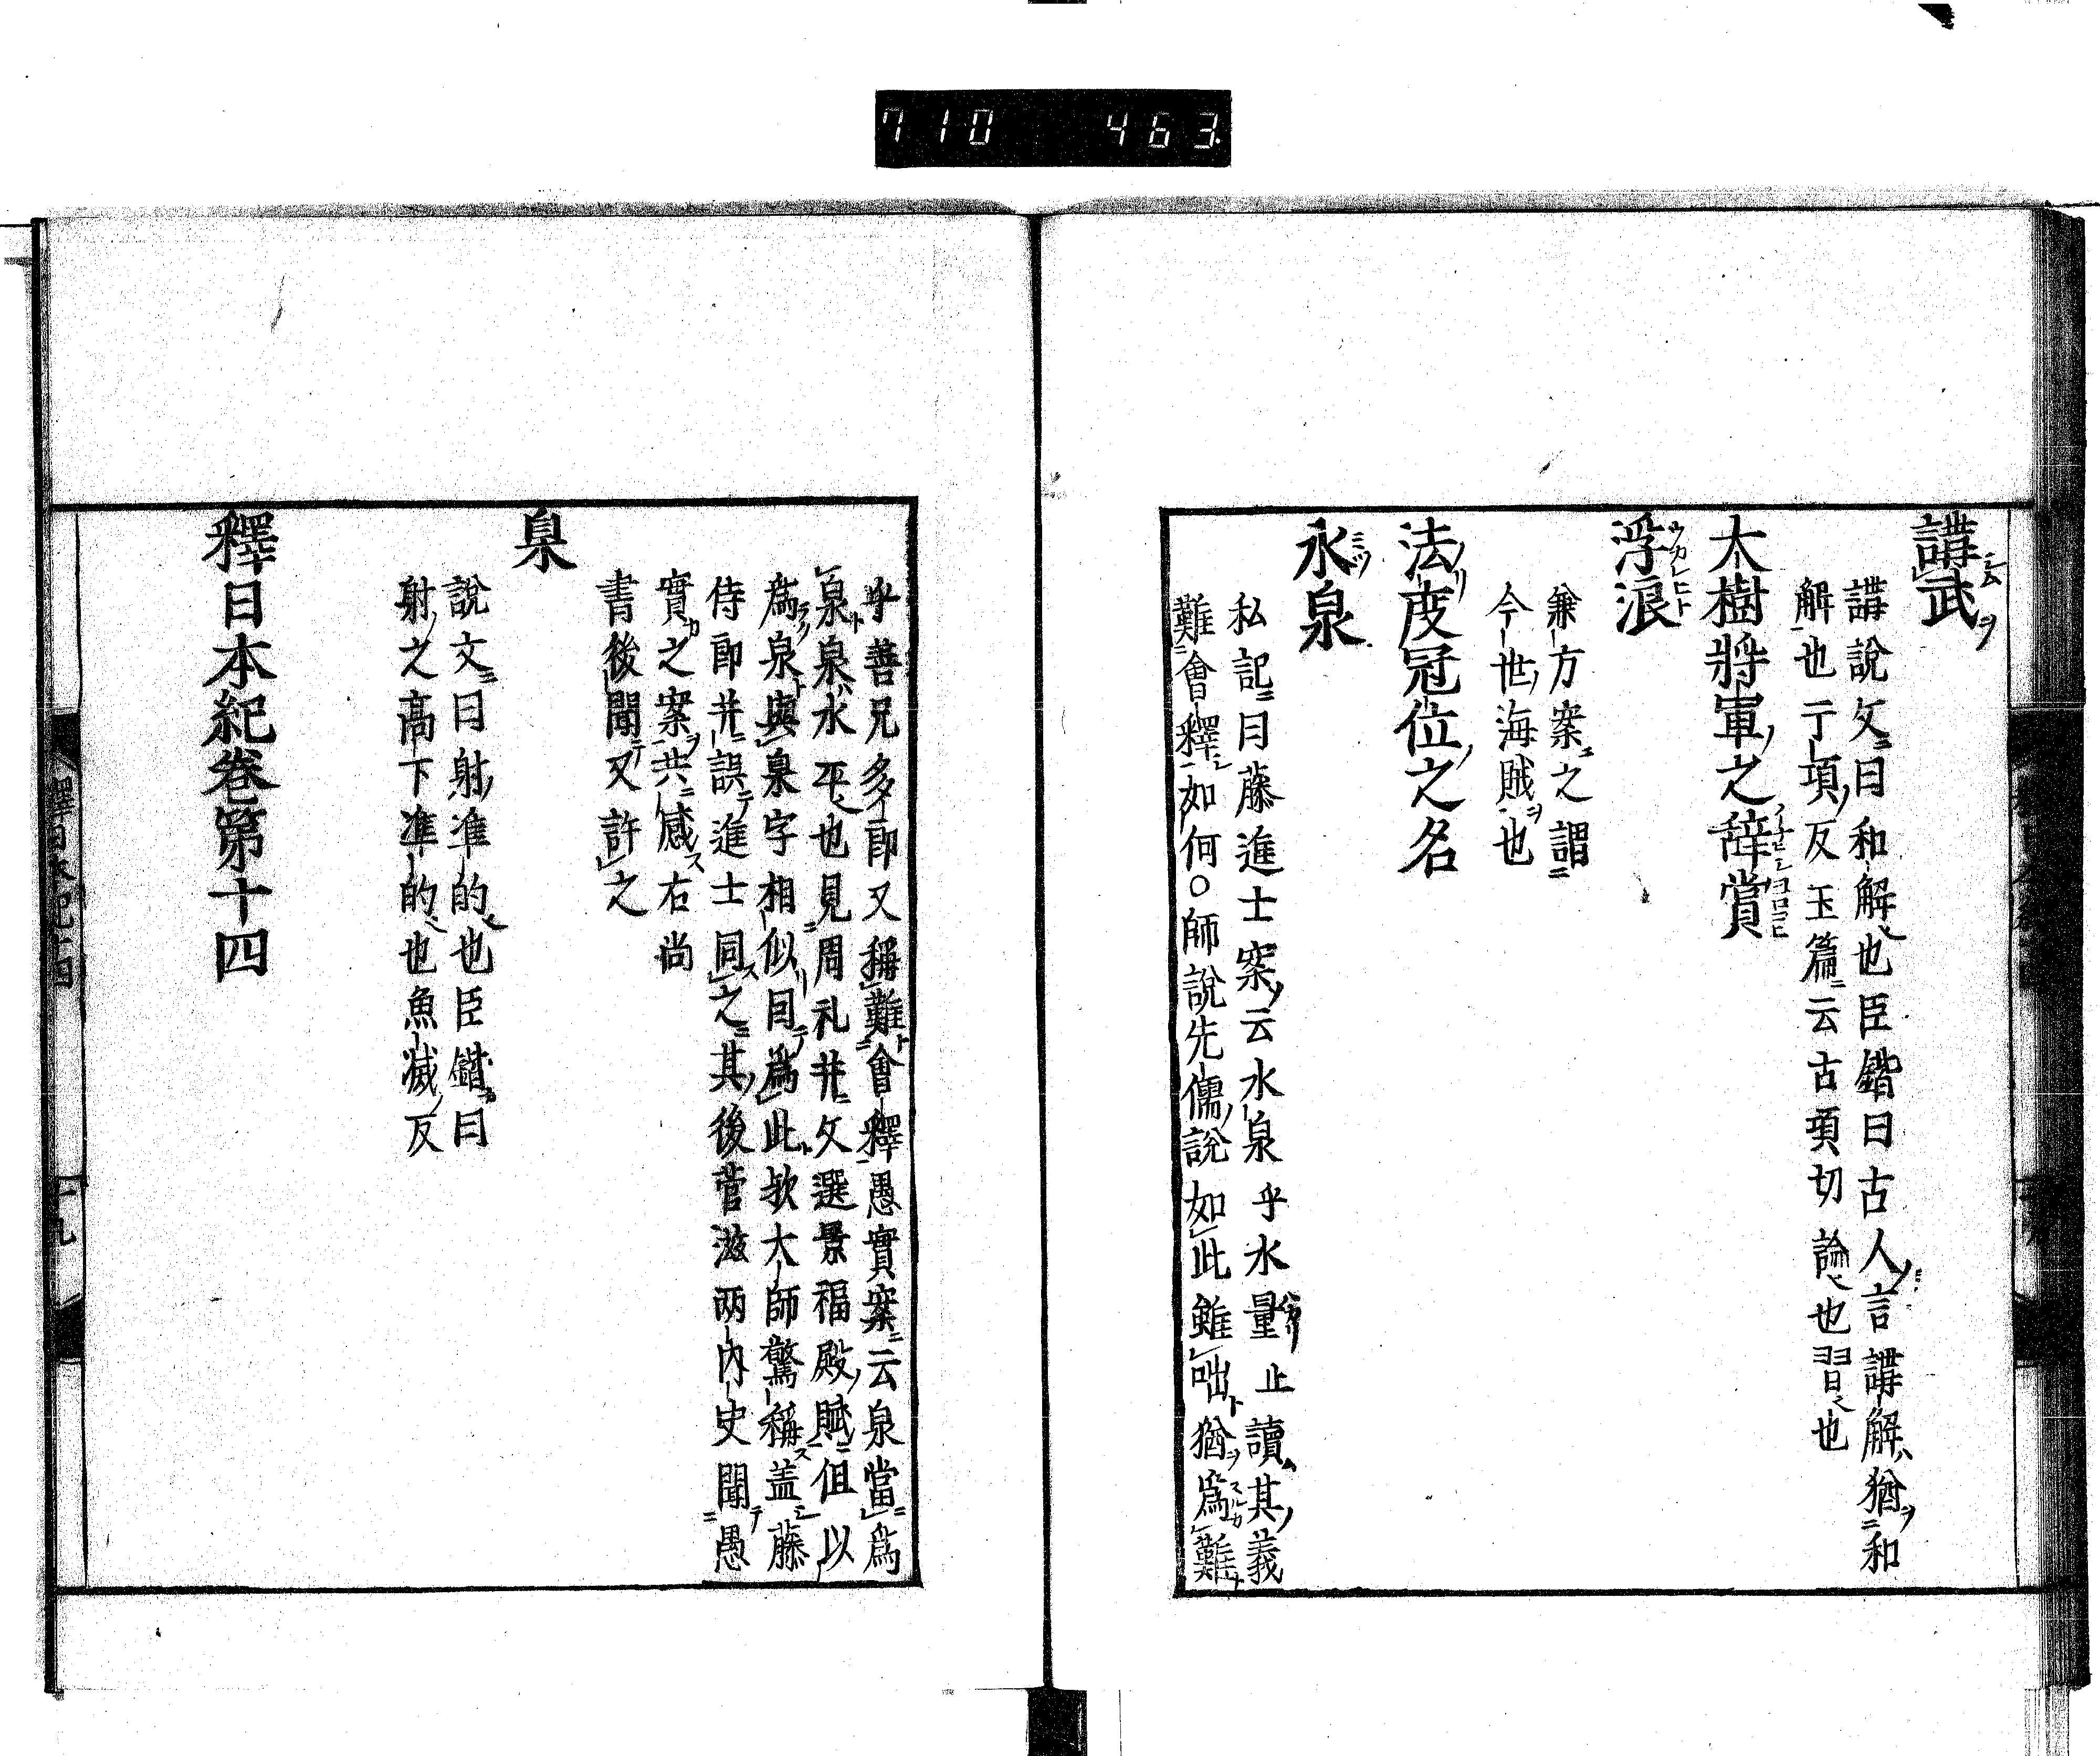 710 463
講武
講説文曰和解也臣鍇曰古人言講解猶和
解也古項反玉篇云古項切論也習也
大樹將軍之辞賞
浮浪
兼方案之謂
今世海賊也
法度冠位之名
水泉
私記曰藤進士案云水泉乎水量止讀其義
難會釋如何○師説先儒説如此雖咄猶爲難
乎善兄多郎又稱難會釋愚實案云泉當爲
臬泉水平也見周礼并文選景福殿賦但以
爲泉與臬字相似目爲此欤大師驚稱盖藤
侍郎并誤進士同之其後菅滋两内史聞愚
實之案共感右尚
書後聞又許之
臬
説文曰射準的也臣鍇曰
射之高下準的也魚滅反
釋日本紀卷第十四
釋日本紀十四
十九